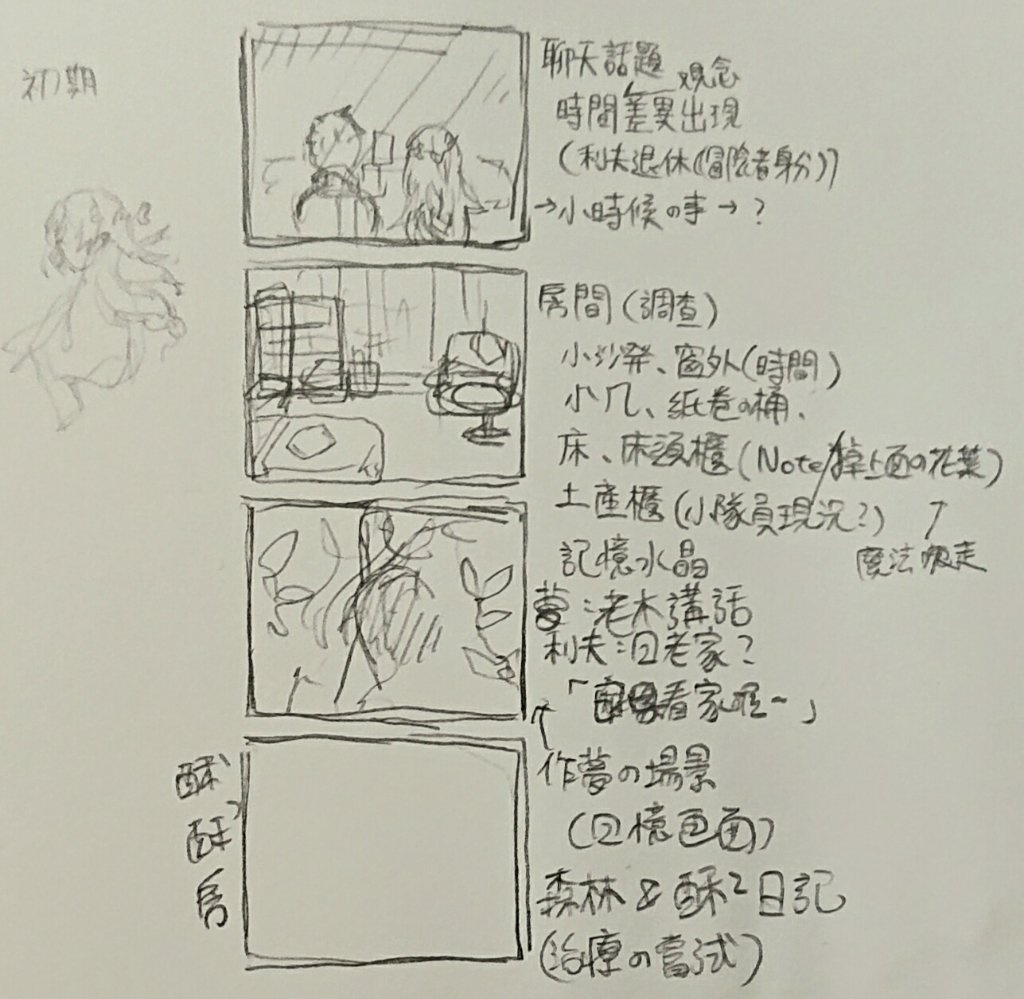 初期
聊天話題
観念
時間差異出現
(利夫退休(冒險者身分))
→小時候の事→?
房間(調查)
小沙発、窗外(時間)
小几、紙卷の桶、
床、床頭櫃(Note/掉上面の花葉)
土産櫃(小隊員現況?)
魔法吸走
記憶水晶
夢:老木講話
利夫:回老家?
看家喔~」
作夢の場景
(回憶画面)
酥
酥
房
森林&酥2日記
(治療の嘗試)